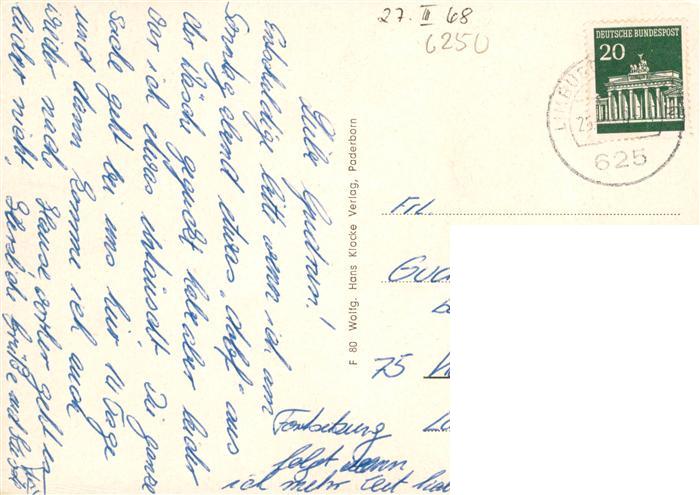 27. III 68
6250
DEUTSCHE BUNDESPOST
20
625
F 80 Wolfg. Hans Klocke Verlag, Paderborn
Liebe Gudrun!
Entschuldige bitte wenn ich am
Sonntag abend etwas "doof" aus
der Wäsche geguckt habe aber leider
war ich etwas enttäuscht. Die ganze
Sache geht bei uns hier 14 Tage
und dann komme ich auch
wieder nach Hause vorher geht es
leider nicht. Herzliche Grüße
Fortsetzung
folgt wenn
ich mehr Zeit habe
Frl.
75